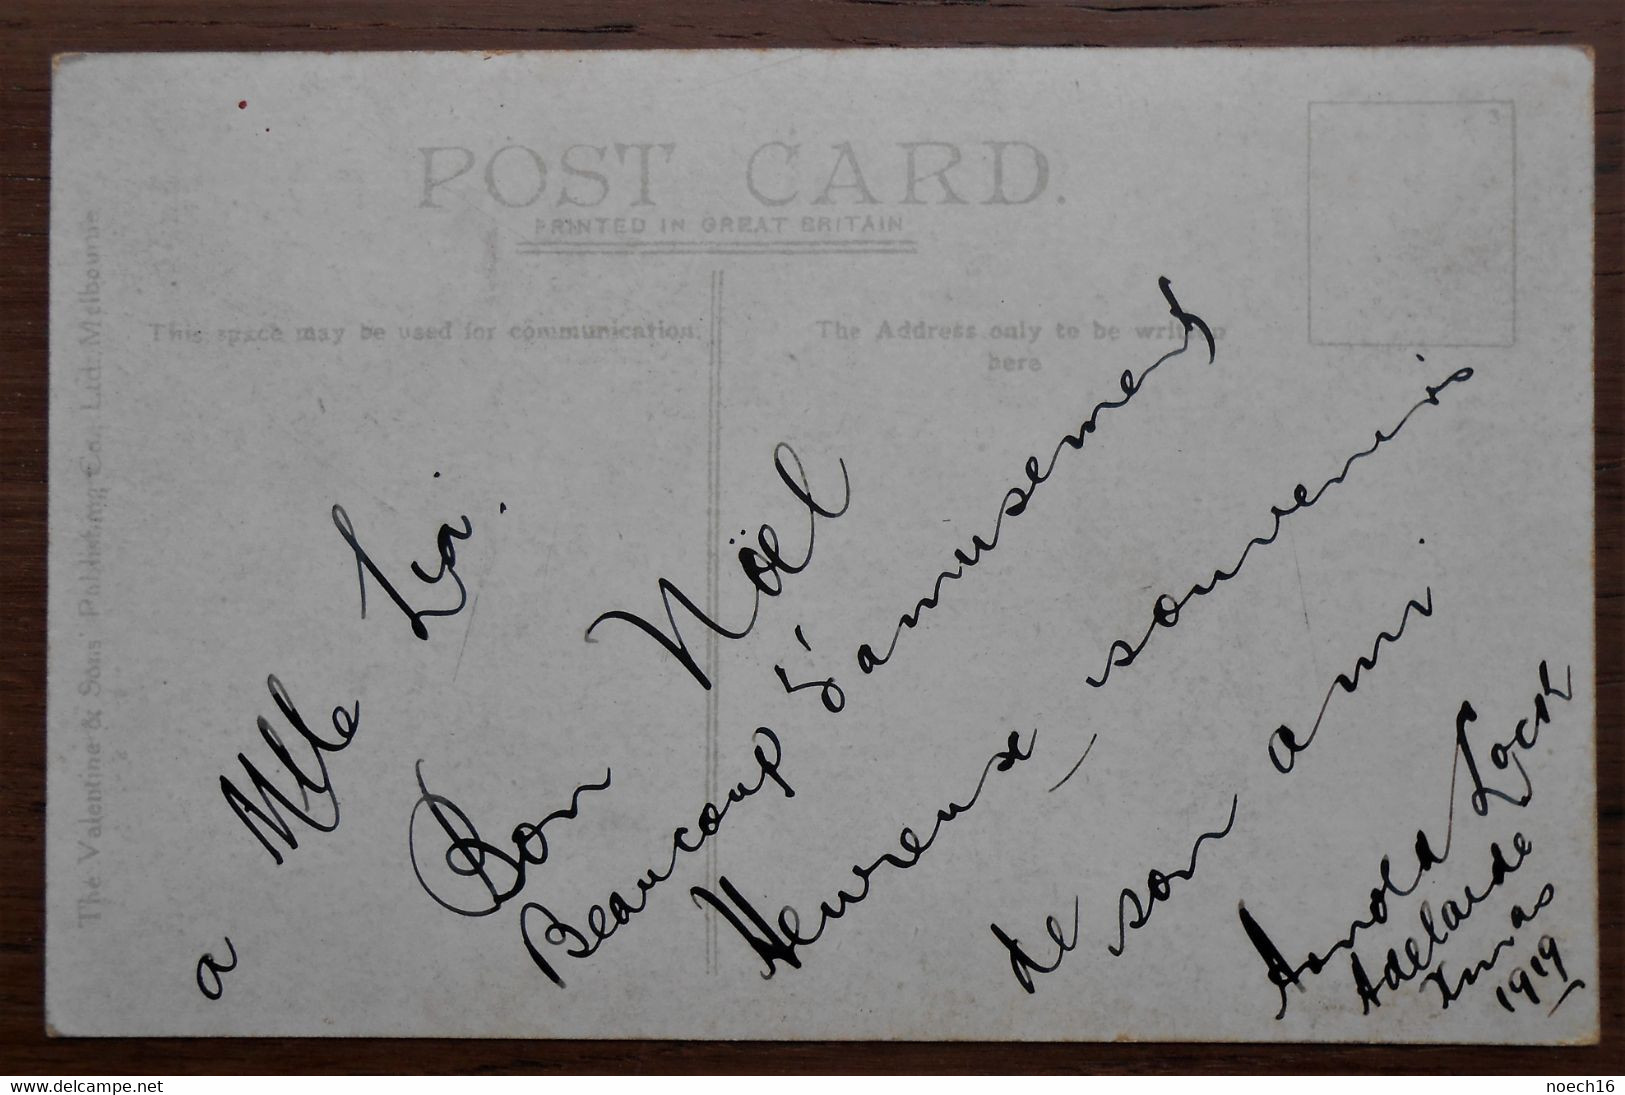 POST CARD.
PRINTED IN GREAT BRITAIN
This space may be used for communication.
The Address only to be written
here
The Valentine & Sons' Publishing Co., Ltd. Melbourne
a Mlle Lia.
Bon Nöel
Beaucoup d'amusement
Heureux souvenirs
de son ami.
Arnold Lock
Adelaide
Xmas
1919
delcampe.net
noech16